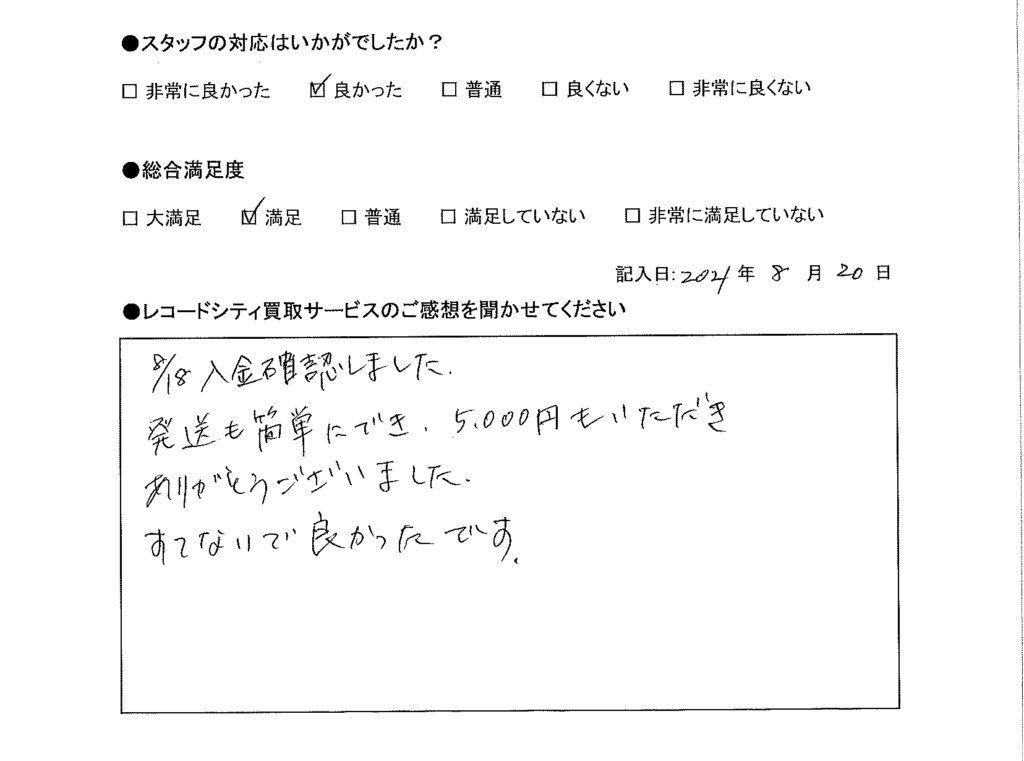 ●スタッフの対応はいかがでしたか?
□ 非常に良かった ☑ 良かった □ 普通 □ 良くない □ 非常に良くない
●総合満足度
□ 大満足 ☑ 満足 □ 普通 □ 満足していない □ 非常に満足していない
記入日:2021 年 8 月 20 日
●レコードシティ買取サービスのご感想を聞かせてください
8/18 入金確認しました.
発送も簡単にでき、5,000円もいただき
ありがとうございました.
すてないで良かったです.